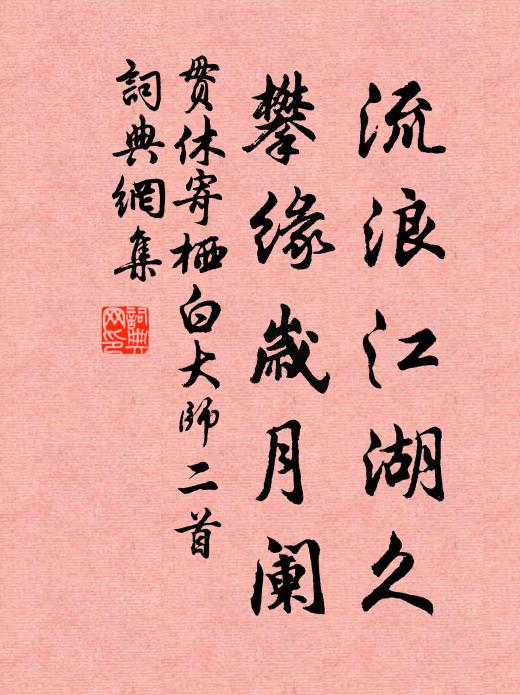 流浪江湖久
攀缘歲月阑
贯休寄栖白大师二首
詞典網集
詞典
网印